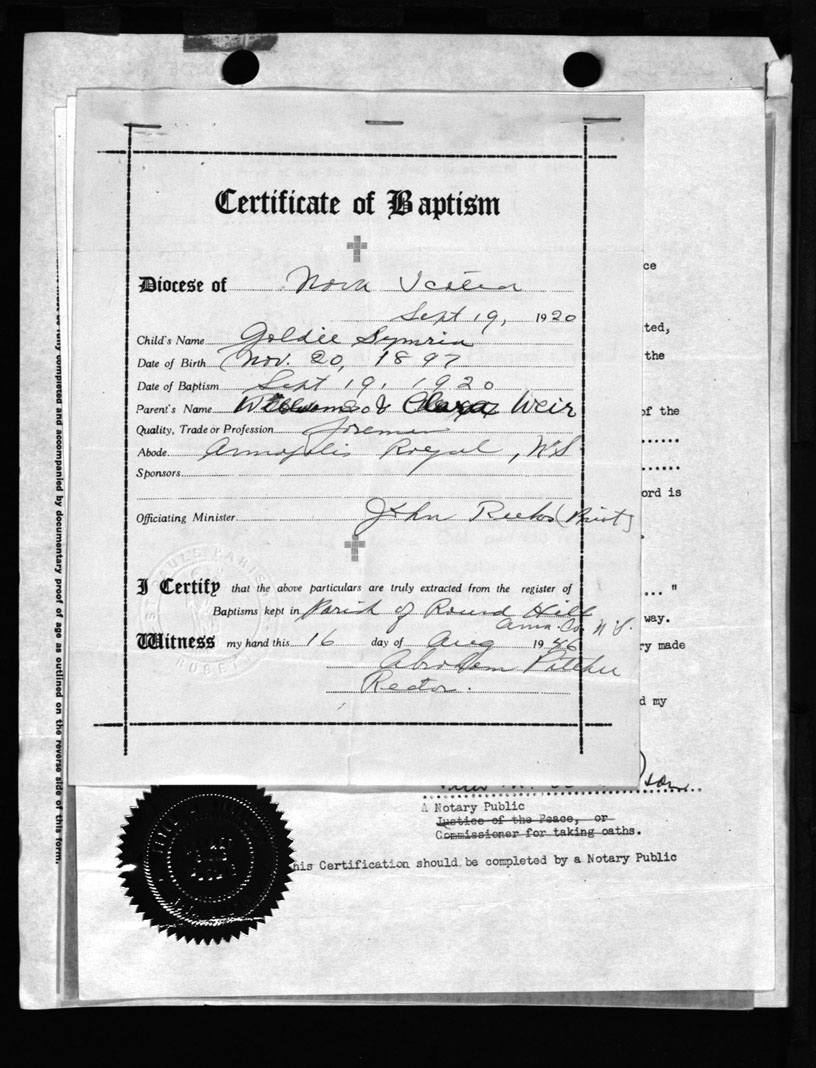 Certificate of Baptism
Diocese of Nova Scotia
Sept 19, 1920
Child's Name Goldie
Date of Birth Nov. 20, 1897
Date of Baptism Sept 19, 1920
Parent's Name William & Clara Weir
Quality, Trade or Profession Foreman
Abode Annapolis Royal, N.S
Sponsors
Officiating Minister John Reeks (Priest)
I Certify that the above particulars are truly extracted from the register of
Baptisms kept in Parish of Round Hill
Anna. Co. N.S.
Witness my hand this 16 day of Aug 1946
Rector.
ce
ted,
the
of the
......
......
ord is
... "
way.
ry made
d my
A Notary Public
Justice of the Peace, or
Commissioner for taking oaths.
his Certification should be completed by a Notary Public
fully completed and accompanied by documentary proof of age as outlined on the reverse side of this form.